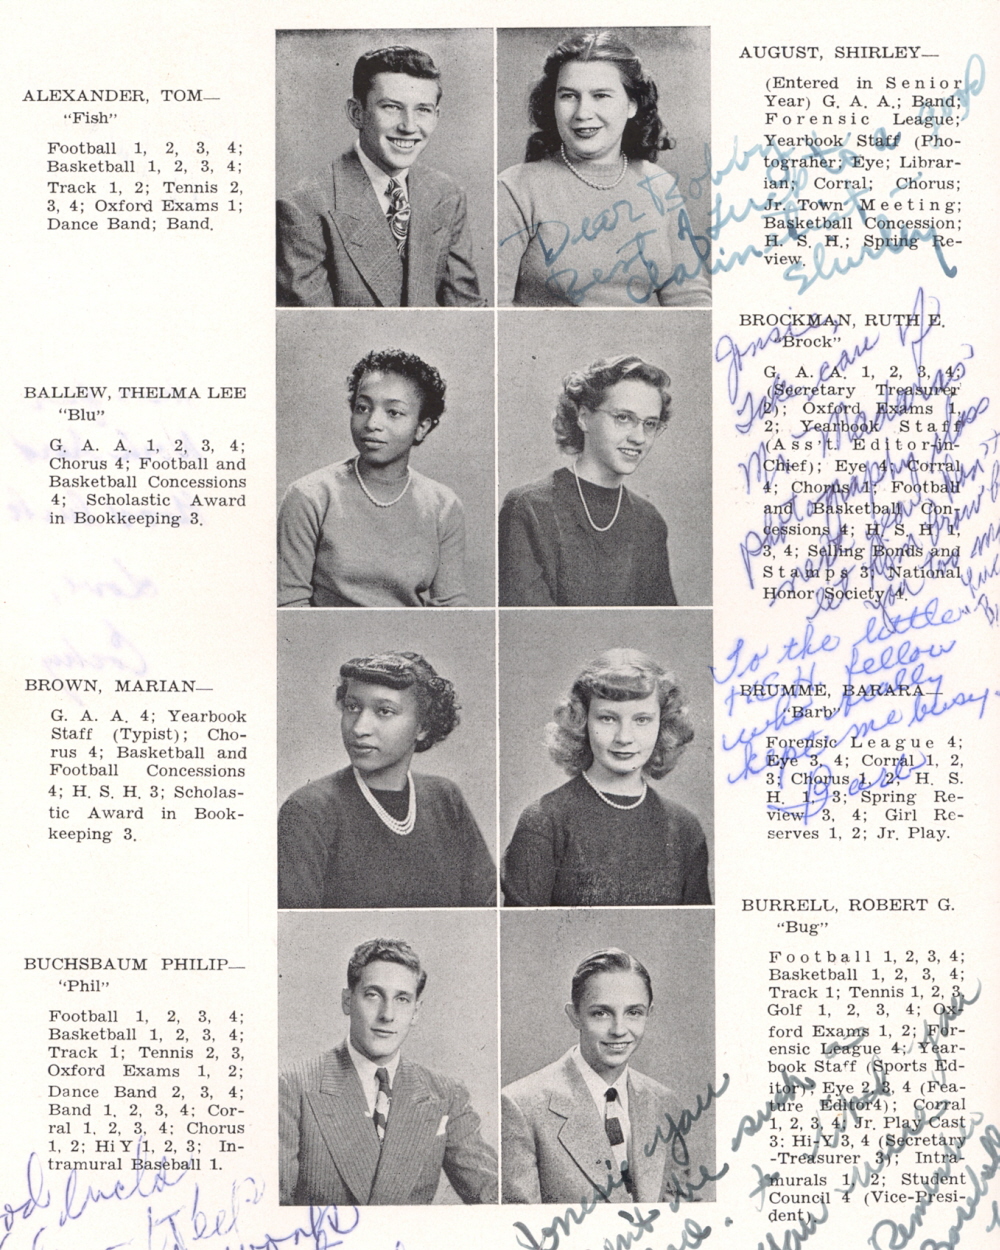 ALEXANDER, TOM—
"Fish"
Football 1, 2, 3, 4;
Basketball 1, 2, 3, 4;
Track 1, 2; Tennis 2,
3, 4; Oxford Exams 1;
Dance Band; Band.
BALLEW, THELMA LEE
"Blu"
G. A. A. 1, 2, 3, 4;
Chorus 4; Football and
Basketball Concessions
4; Scholastic Award
in Bookkeeping 3.
BROWN, MARIAN—
G. A. A. 4; Yearbook
Staff (Typist); Cho-
rus 4; Basketball and
Football Concessions
4; H. S. H. 3; Scholas-
tic Award in Book-
keeping 3.
BUCHSBAUM PHILIP—
"Phil"
Football 1, 2, 3, 4;
Basketball 1, 2, 3, 4;
Track 1; Tennis 2, 3,
Oxford Exams 1, 2;
Dance Band 2, 3, 4;
Band 1, 2, 3, 4; Cor-
ral 1, 2, 3, 4; Chorus
1, 2; Hi Y 1, 2, 3; In-
tramural Baseball 1.
AUGUST, SHIRLEY—
(Entered in Senior
Year) G. A. A.; Band;
Forensic League;
Yearbook Staff (Pho-
tograher; Eye; Librar-
ian; Corral; Chorus;
Jr. Town Meeting;
Basketball Concession;
H. S. H.; Spring Re-
view.
Dear Bobby
Best of luck to a good
clarinetist—
Shirley
BROCKMAN, RUTH E.
"Brock"
G. A. A. 1, 2, 3, 4;
(Secretary Treasurer
2); Oxford Exams 1,
2; Yearbook Staff
(Ass't. Editor-in-
Chief); Eye 4; Corral
4; Chorus 1; Football
and Basketball Con-
cessions 4; H. S. H 1,
3, 4; Selling Bonds and
Stamps 3; National
Honor Society 4.
Take care of
Mr.
photography class
next year. Don't
let him
you too
BRUMME, BARARA—
"Barb"
Forensic League 4;
Eye 3, 4; Corral 1, 2,
3; Chorus 1, 2; H. S.
H. 1, 3; Spring Re-
view 3, 4; Girl Re-
serves 1, 2; Jr. Play.
To the little
fellow
who really
kept me busy.
Barb
BURRELL, ROBERT G.
"Bug"
Football 1, 2, 3, 4;
Basketball 1, 2, 3, 4;
Track 1; Tennis 1, 2, 3,
Golf 1, 2, 3, 4; Ox-
ford Exams 1, 2; For-
ensic League 4; Year-
book Staff (Sports Ed-
itor); Eye 2, 3, 4 (Fea-
ture Editor4); Corral
1, 2, 3, 4; Jr. Play Cast
3; Hi-Y 3, 4 (Secretary
-Treasurer 3); Intra-
murals 1, 2; Student
Council 4 (Vice-Presi-
dent).